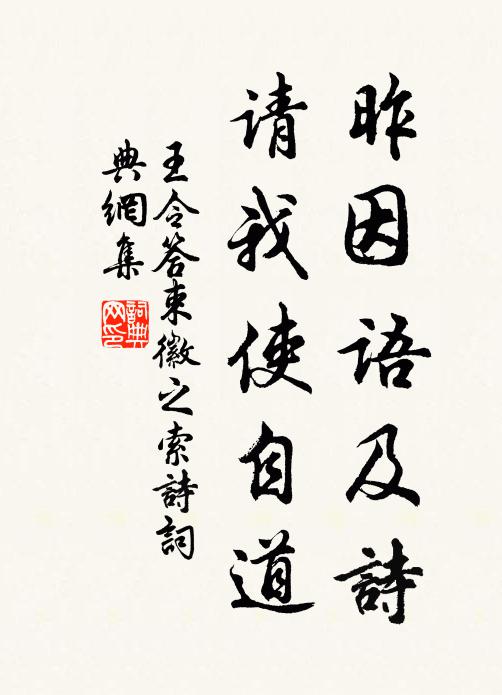 昨因语及詩
请我使自道
王令答束徽之索詩詞
典網集
詞典網印